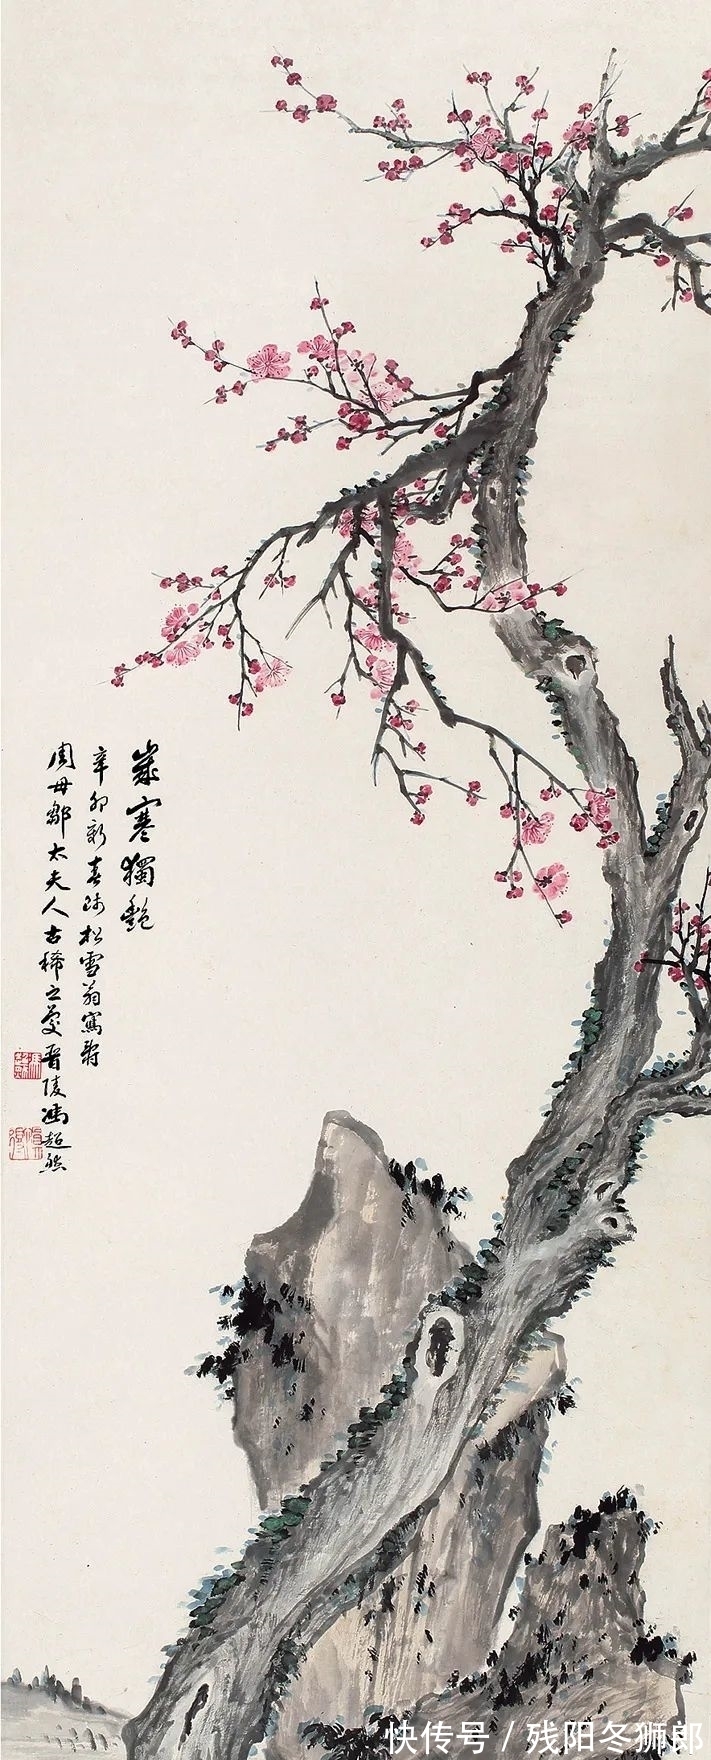 歲寒獨艷
辛卯新春師松雪翁寫壽
周母鄒太夫人古稀之慶晉陵馮超然
快传号 / 残阳冬狮郎